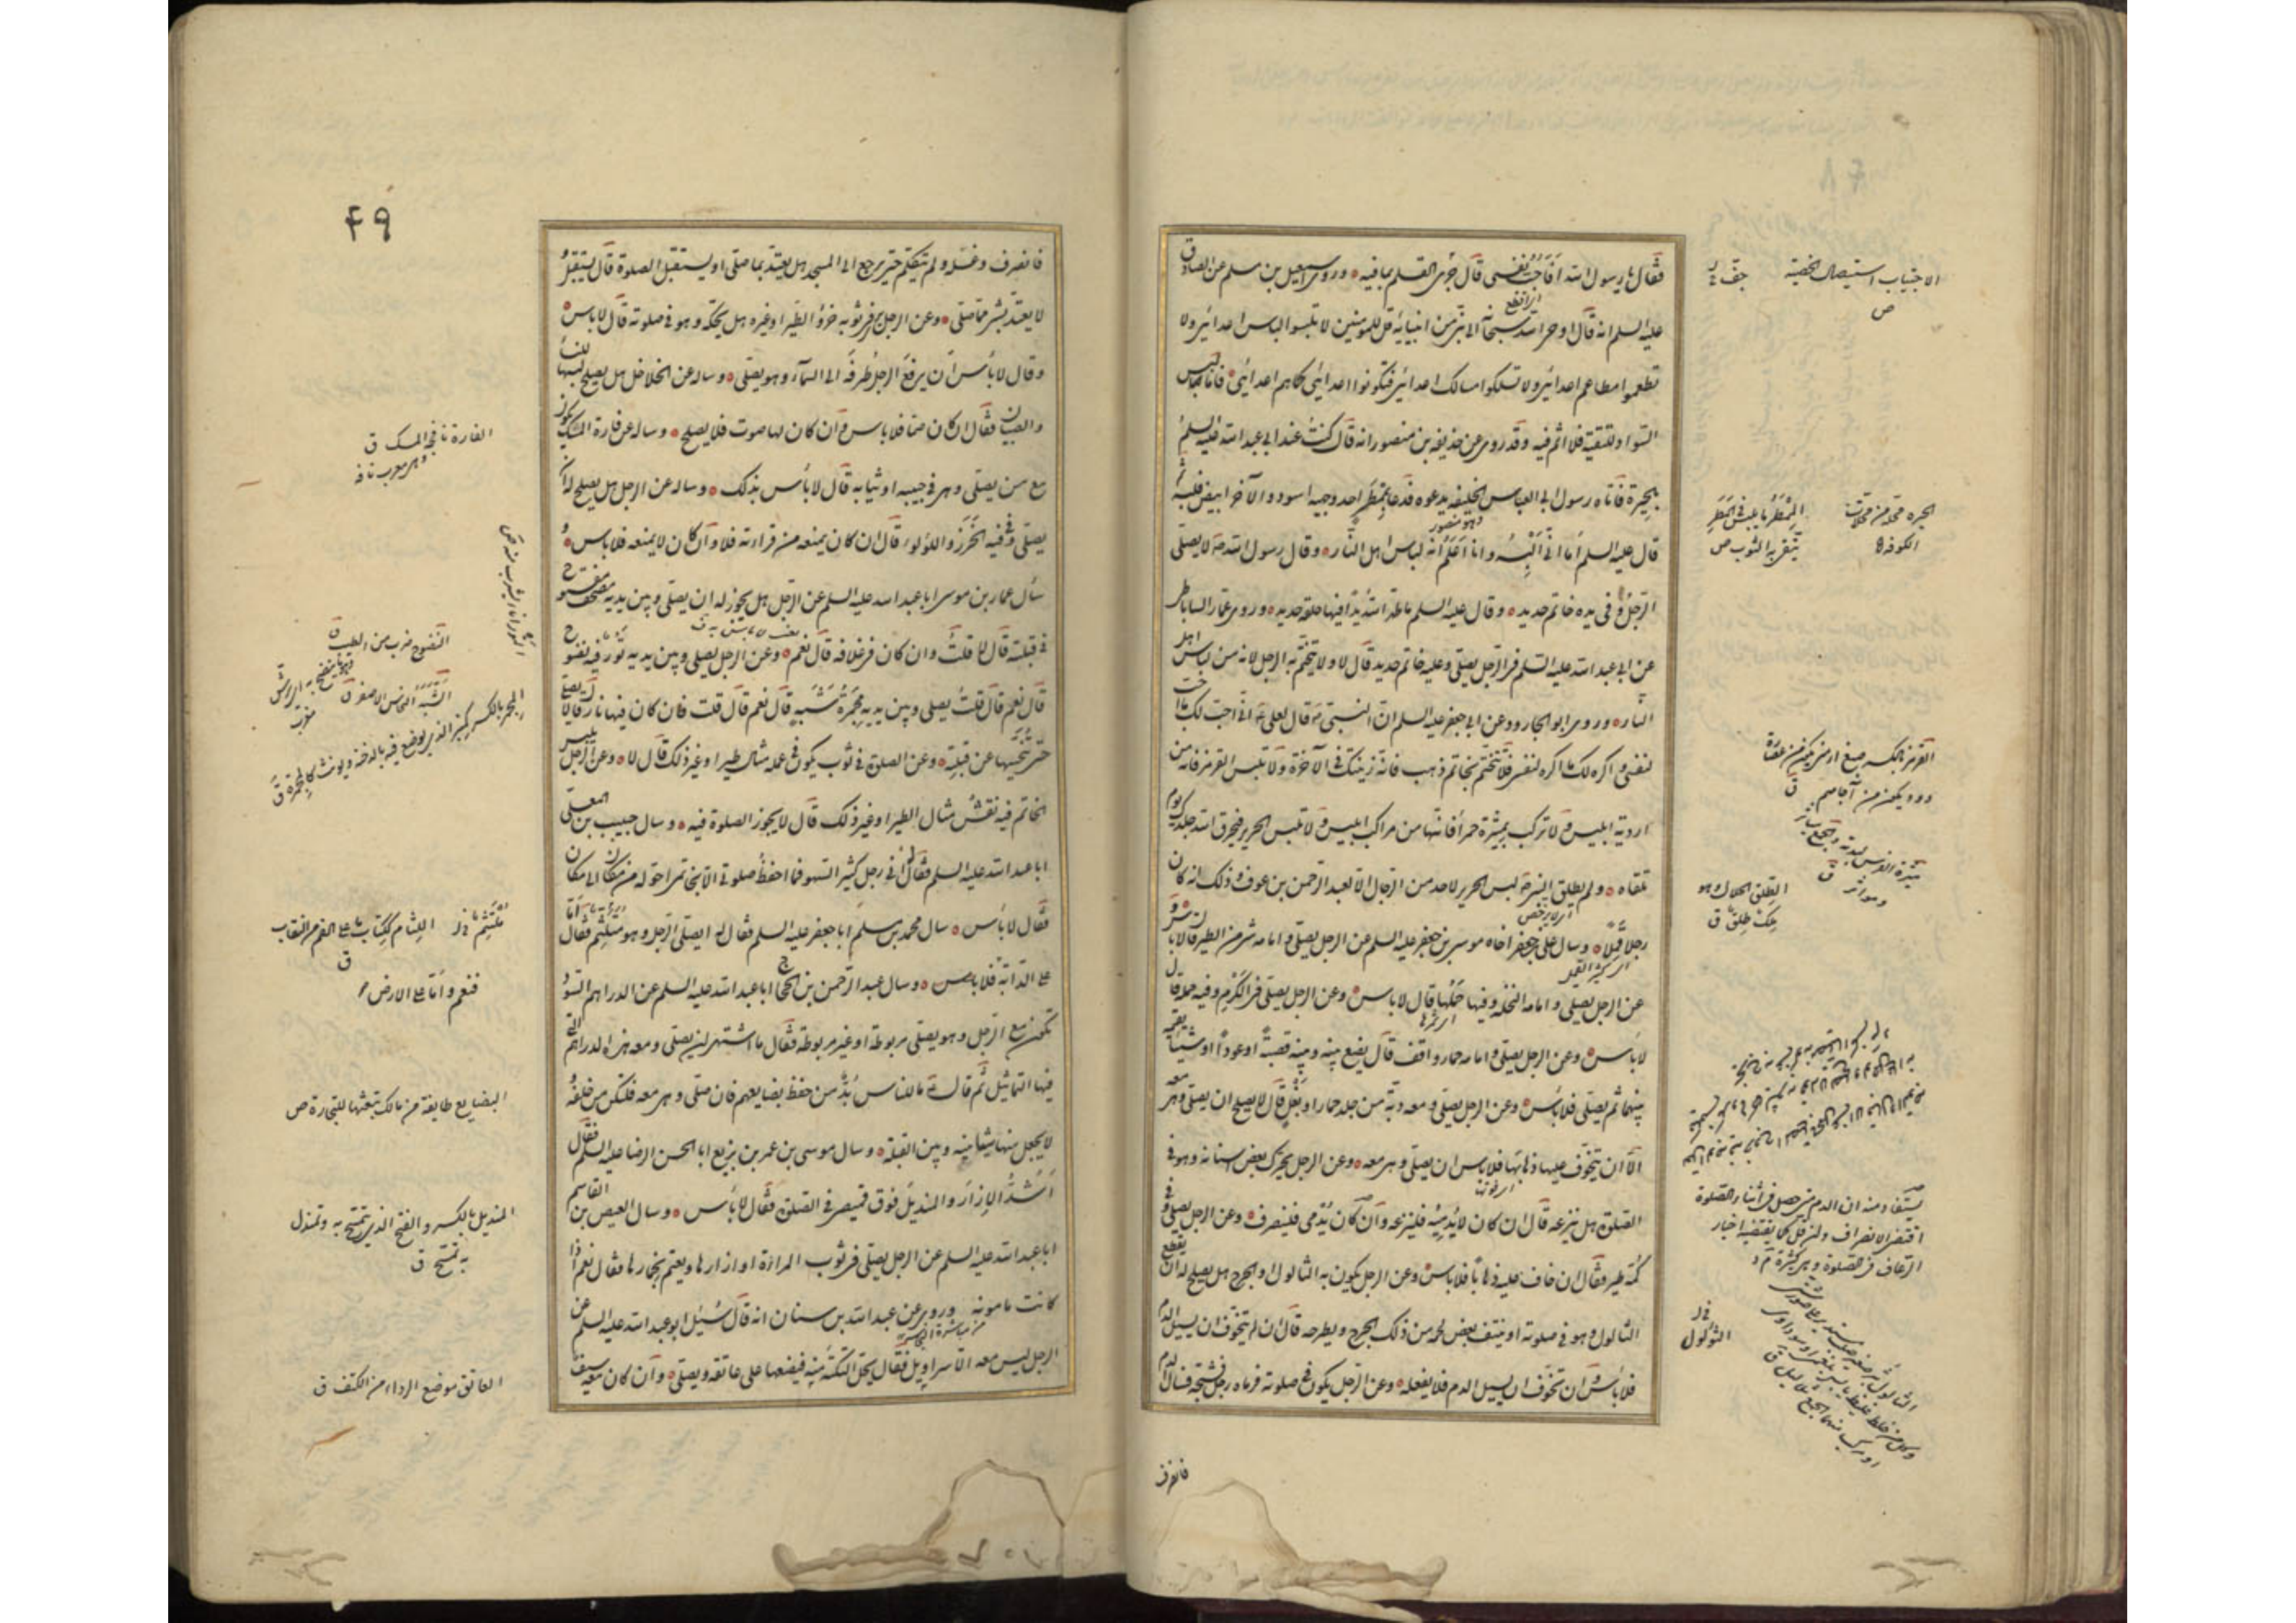 فقال يا رسول الله أفأجبّ نفسي قال جرى القلم بما فيه وروى اسمعيل بن مسلم عن الصادق
عليه السلم انه قال اوحى الله سبحانه الى نبي من انبيائه قل للمؤمنين لا تلبسوا لباس اعدائي ولا
تطعموا مطاعم اعدائي ولا تسلكوا مسالك اعدائي فتكونوا اعدائي كما هم اعدائي فاما لبس
السواد للتقية فلا اثم فيه وقد روى عن حذيفه بن منصور انه قال كنت عند ابي عبد الله عليه السلم
بالحيرة فاتاه رسول ابي العباس الخليفه يدعوه فدعا بممطر احد وجهيه اسود والآخر ابيض فلبسه ثم
قال عليه السلم اما اني البسه وانا اعلم انه لباس اهل النار وقال رسول الله ص لا يصلى
الرجل وفي يده خاتم حديد وقال عليه السلم ما طهر الله يدا فيها حلقة حديد وروى عمار الساباطي
عن ابي عبد الله عليه السلم في الرجل يصلى وعليه خاتم حديد قال لا ولا يتختم به الرجل لانه من لباس اهل
النار وروى ابو الجارود عن ابي جعفر عليه السلم ان النبي ص قال لعلي ع اني احب لك ما احب
لنفسي واكره لك ما اكره لنفسي فلا تتختم بخاتم ذهب فانه زينتك في الآخرة ولا تلبس القرمز فانه من
اردية ابليس ولا تركب بميثرة حمراء فانها من مراكب ابليس ولا تلبس الحرير فيحرق الله جلدك يوم
تلقاه ولم يطلق النبي ص لبس الحرير لاحد من الرجال الا لعبد الرحمن بن عوف وذلك انه كان
رجلا قملا وسال على بن جعفر اخاه موسى بن جعفر عليه السلم عن الرجل يصلى وامامه شيء من الطير قال لا باس
عن الرجل يصلى وامامه النخلة وفيها حملها قال لا باس وعن الرجل يصلى في الكرم وفيه حمله قال
لا باس وعن الرجل يصلى وامامه حمار واقف قال يضع بينه وبينه قصبة او عودا او شيئا يقيمه
بينهما ثم يصلى فلا باس وعن الرجل يصلى ومعه دبة من جلد حمار او بغل قال لا يصلح ان يصلى وهي معه
الا ان يتخوف عليها ذهابها فلا باس ان يصلى وهي معه وعن الرجل يحرك بعض اسنانه وهو في
الصلوة هل ينزعه قال ان كان لا يدميه فلينزعه وان كان يدمى فلينصرف وعن الرجل يصلى وفي
كمه طير فقال ان خاف عليه ذهابا فلا باس وعن الرجل يكون به الثالول او الجرح هل يصلح له ان يقطع
الثالول وهو في صلوته او ينتف بعض لحمه من ذلك الجرح ويطرحه قال ان لم يتخوف ان يسيل الدم
فلا باس وان تخوف ان يسيل الدم فلا يفعله وعن الرجل يكون في صلوته فرماه رجل فشجه فسال الدم
فانصرف
الاجتباب استيصال الخصية
ص
الحيره محلة من محلات
الكوفه
الممطر ما يلبس في المطر
يتقى به الثوب ص
الطلق الحلال وهو
لك طلق ق
يستفاد منه ان الدم متى حصل في اثناء الصلوة
اقتضى الانصراف
الثولول
۴۹
فانصرف وغسله ولم يتكلم حتى رجع الى المسجد هل يعتد بما صلى او يستقبل الصلوة قال يستقبل
لا يعتد بشيء مما صلى وعن الرجل يرى في ثوبه خرؤ الطير او غيره هل يحكه وهو في صلوته قال لا باس
وقال لا بأس ان يرفع الرجل طرفه الى السماء وهو يصلى وساله عن الخلاخل هل يصلح لبسها للنساء
والصبيان فقال ان كان صما فلا باس وان كان لها صوت فلا يصلح وساله عن فارة المسك تكون
مع من يصلى وهي في جيبه او ثيابه قال لا بأس بذلك وساله عن الرجل هل يصلح له ان
يصلى وفي فيه الخرز واللؤلوء قال ان كان يمنعه من قراءته فلا وان كان لا يمنعه فلا باس و
سأل عمار بن موسى ابا عبد الله عليه السلم عن الرجل هل يجوز له ان يصلى وبين يديه مصحف مفتوح
في قبلته قال لا قلت وان كان في غلافه قال نعم وعن الرجل يصلى وبين يديه تور فيه نضوح
قال نعم قال قلت يصلى وبين يديه مجمرة شبه قال نعم قال قلت فان كان فيها نار قال لا يصلى
حتى ينحيها عن قبلته وعن الصلوة في ثوب يكون في علمه مثال طير او غير ذلك قال لا وعن الرجل يلبس
الخاتم فيه نقش مثال الطير او غير ذلك قال لا يجوز الصلوة فيه وسال حبيب بن المعلى
ابا عبد الله عليه السلم فقال له اني رجل كثير السهو فما احفظ صلوتي الا بخاتمي احوله من مكان الى مكان
فقال لا بأس وسال محمد بن مسلم ابا جعفر عليه السلم فقال له ايصلى الرجل وهو متلثم فقال اما
على الدابة فلا باس وسال عبد الرحمن بن الحجاج ابا عبد الله عليه السلم عن الدراهم السود
تكون مع الرجل وهو يصلى مربوطة او غير مربوطة فقال ما اشتهى ان يصلى ومعه هذه الدراهم التي
فيها التماثيل ثم قال ع ما للناس بد من حفظ بضايعهم فان صلى وهي معه فلتكن من خلفه و
لا يجعل منها شيئا بينه وبين القبلة وسال موسى بن عمر بن بزيع ابا الحسن الرضا عليه السلم فقال
اشد الازار والمنديل فوق قميصي في الصلوة فقال لا بأس وسال العيص بن القاسم
ابا عبد الله عليه السلم عن الرجل يصلى في ثوب المراة او ازارها ويعتم بخمارها فقال نعم اذا
كانت مامونة وروى عن عبد الله بن سنان انه قال سئل ابو عبد الله عليه السلم عن
الرجل ليس معه الا سراويل فقال يحل التكة منه فيضعها على عاتقه ويصلى وان كان معه سيف
الفارة نافجة المسك ق
وهي معرب نافه
النضوح ضرب من الطيب ق
الشبه النحاس الاصفر ق
اللثام ككتاب ما على الفم من النقاب
ق
فنعم واما على الارض
البضايع طايفة من مالك تبعثها للتجارة ص
المنديل بالكسر والفتح الذي يتمسح به وتمندل
به تمسح ق
العاتق موضع الرداء من الكتف ق